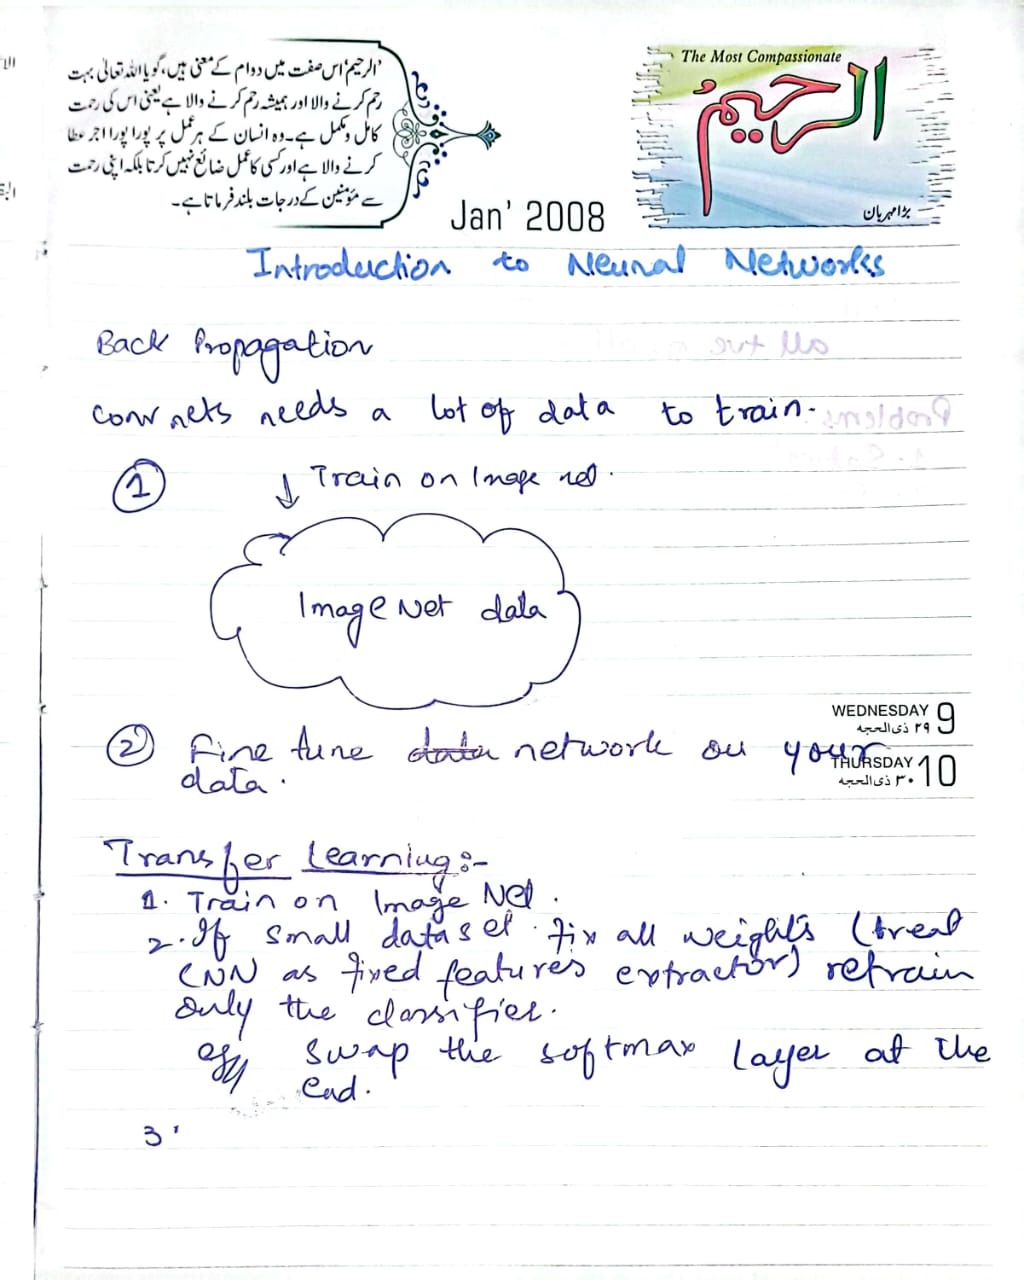 الرحیم' اس صفت میں دوام کے معنی ہیں، گویا اللہ تعالیٰ بہت
رحم کرنے والا اور ہمیشہ رحم کرنے والا ہے یعنی اس کی رحمت
کامل و مکمل ہے۔ وہ انسان کے ہر عمل پر پورا پورا اجر عطا
کرنے والا ہے اور کسی کا عمل ضائع نہیں کرتا بلکہ اپنی رحمت
سے مؤمنین کے درجات بلند فرماتا ہے۔
The Most Compassionate
الرحیم
بڑا مہربان
Jan' 2008
Introduction to Neural Networks
Back Propagation
Conv nets needs a lot of data to train.
1
↓ Train on Image net.
ImageNet data
WEDNESDAY 9
۲۹ ذی الحجہ
2 Fine tune data network on your
THURSDAY 10
۳۰ ذی الحجہ
data.
Transfer Learning:-
1. Train on Image Net.
2. If small dataset fix all weights (treat
CNN as fixed features extractor) retrain
only the classifier.
eg, swap the softmax layer at the
end.
3.